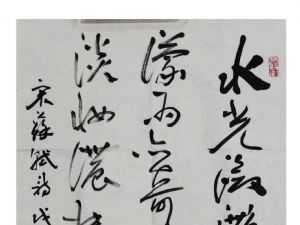 水光潋滟
濛雨亦奇
淡妆浓抹
宋苏轼诗戊